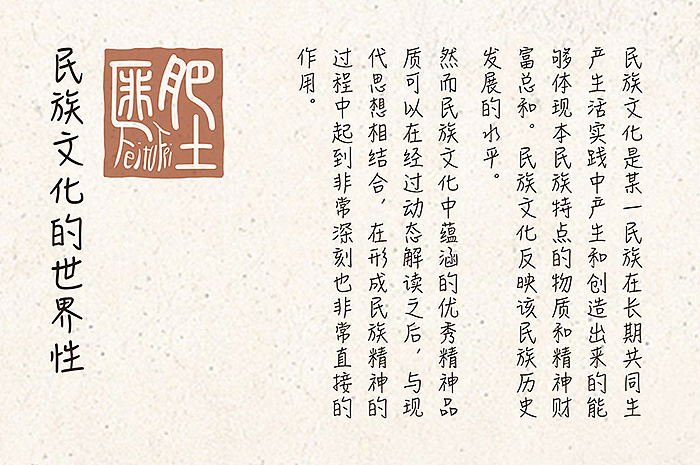 民族文化是某一民族在长期共同生
产生活实践中产生和创造出来的能
够体现本民族特点的物质和精神财
富总和。民族文化反映该民族历史
发展的水平。
然而民族文化中蕴涵的优秀精神品
质可以在经过动态解读之后，与现
代思想相结合，在形成民族精神的
过程中起到非常深刻也非常直接的
作用。
肥土
民族文化的世界性